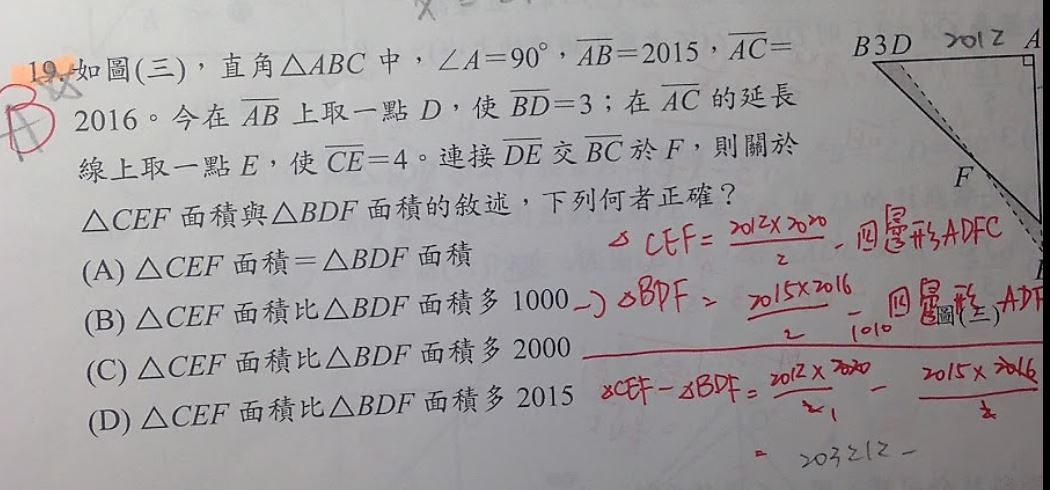 19. 如圖(三)，直角△ABC 中，∠A=90°，AB=2015，AC=
2016。今在 AB 上取一點 D，使 BD=3；在 AC 的延長
線上取一點 E，使 CE=4。連接 DE 交 BC 於 F，則關於
△CEF 面積與△BDF 面積的敘述，下列何者正確？
(A) △CEF 面積＝△BDF 面積
(B) △CEF 面積比△BDF 面積多 1000
(C) △CEF 面積比△BDF 面積多 2000
(D) △CEF 面積比△BDF 面積多 2015
B
B3D 2012 A
F
圖(三)
△CEF= 2012×2020 / 2 - 四邊形ADFC
-) △BDF= 2015×2016 / 2 - 四邊形ADF
1010
△CEF-△BDF= 2012×2020 / 2 1 - 2015×2016 / 2
= 203212-